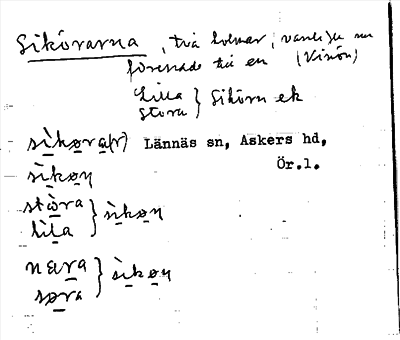 Sikörarna, två holmar, vanligen nu
förenade till en (Vinön)
Lilla } Siköra ek
Stora
sìkøra(r) Lännäs sn, Askers hd,
sìkøn Ör.l.
stòra } sìkøn
lìla
næra } sìkøn
søra